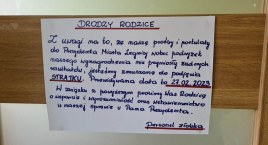 DRODZY RODZICE
Z uwagi na to, że nasze prośby i postulaty
do Prezydenta Miasta Legnicy wobec podwyżek
naszego wynagrodzenia nie przyniosły żadnych
rezultatów, jesteśmy zmuszone do podjęcia
STRAJKU. Przewidywana data to 27.02.2023
W związku z powyższym prosimy Was Rodzice
o wsparcie i wyrozumiałość oraz wstawiennictwo
w naszej sprawie u Pana Prezydenta.
Personel żłobka